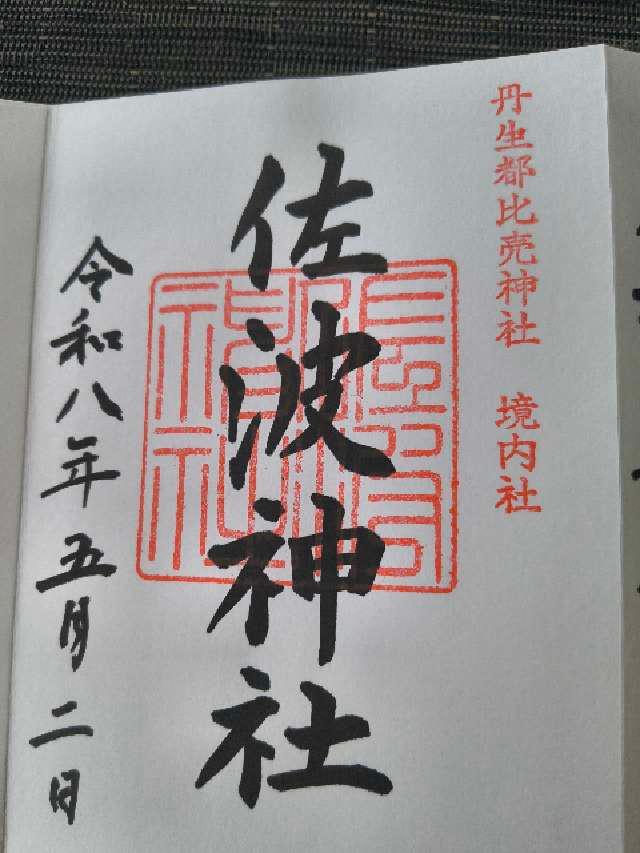 丹生都比売神社 境内社
佐波神社
令和八年五月二日